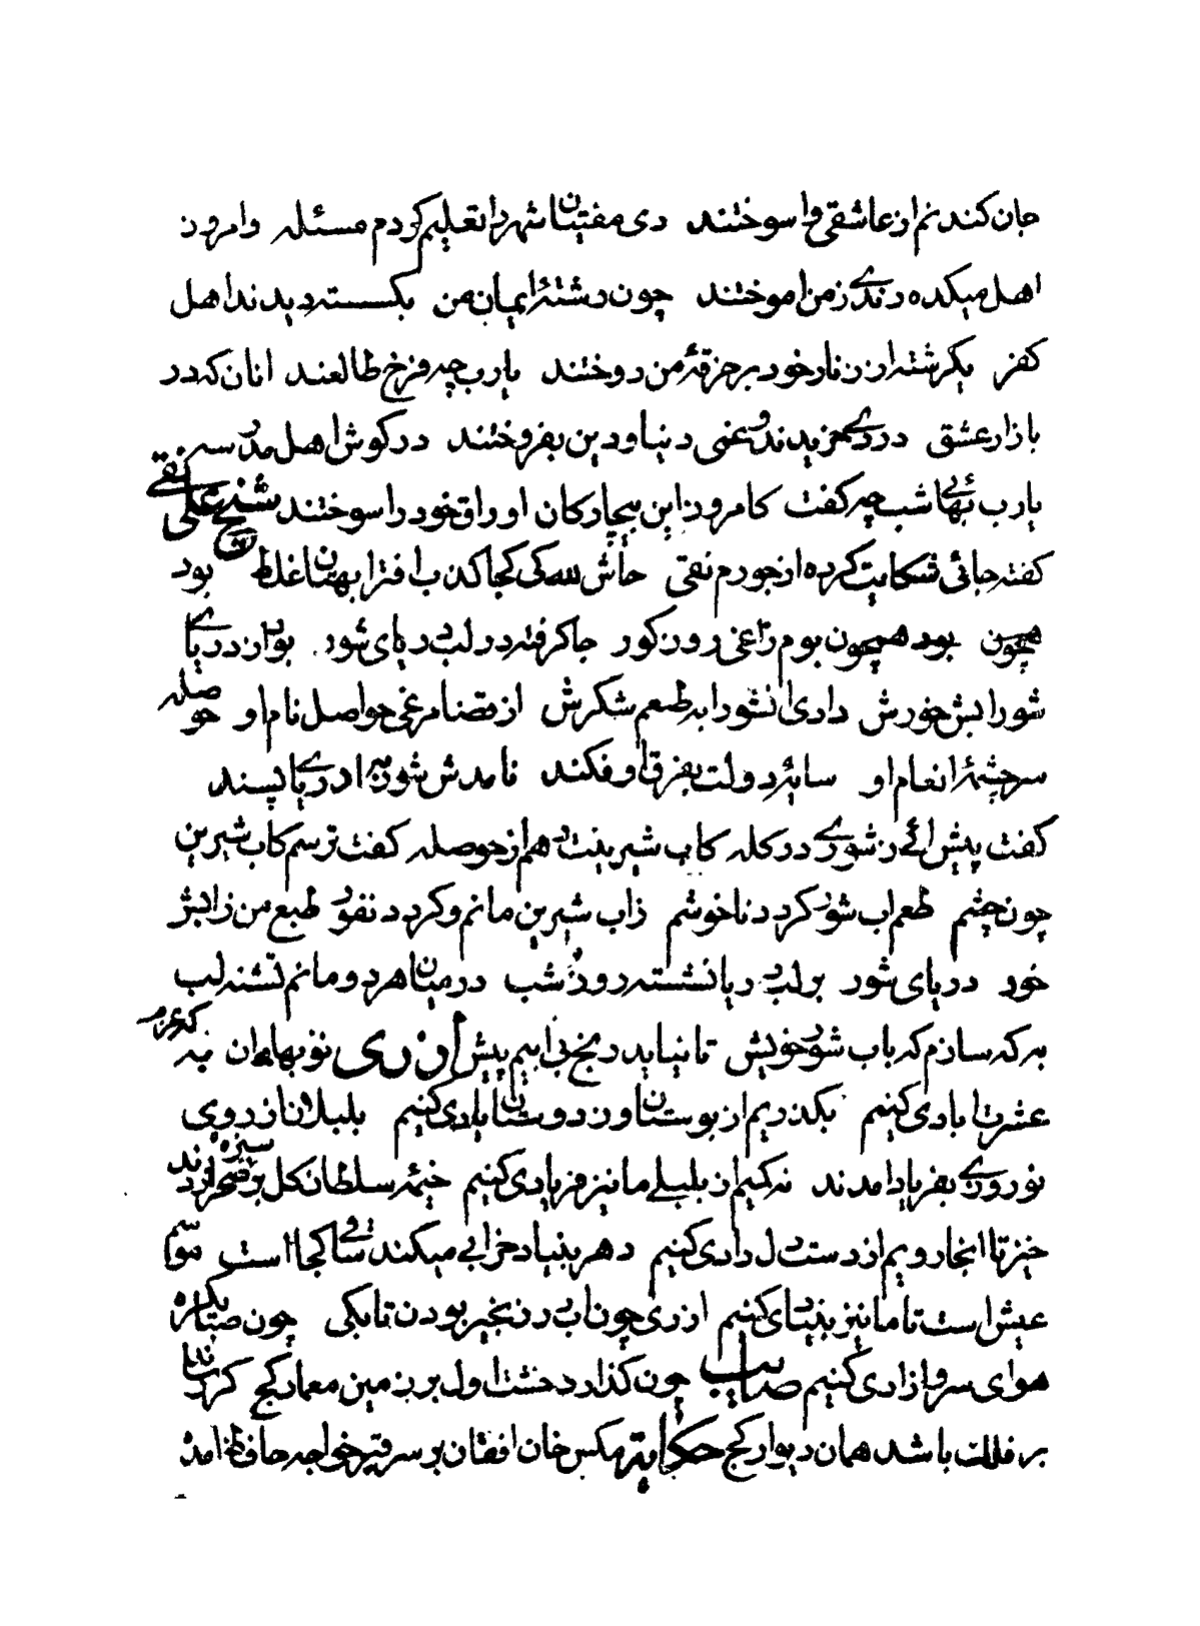 جان کندنم از عاشقی وا سوختند دی مفتیان شهر را تعلیم کردم مسئله و امروز
اهل میکده رندی ز من اموختند چون رشتهٔ ایمان من بگسسته دیدند اهل
کفر یکرشته از زنار خود بر خرقهٔ من دوختند یارب چه فرخ طالعند انان که در
بازار عشق دردی خریدند و غمی دنیا و دین بفروختند در کوش اهل مدرسه
یارب بهائی شب چه کفت کامروز این بیچارکان اوراق خود را سوختند شیخ علی نقی
کفته جائی شکایت کرده از جورم نقی حاش لله کی کجا کذب افترا بهتان غلط بود
همچون بود همچون بوم زاغی روز کور جا کرفته در لب دریای شور بود از دریای
شورابش خورش دادی ان شورابه طعم شکرش از قضا مرغی حواصل نام او حوصله
سرچشمهٔ انعام او سایهٔ دولت بفرق او فکند نامدش شورابه دریا پسند
کفت پیش ائی ز شوری در کله کاب شیرینت دهم از حوصله کفت ترسم کاب شیرین
چون چشم طعم اب شور کردد ناخوشم زاب شیرین مانم و کردد نفور طبع من زابش
خور دریای شور بر لب دریا نشسته روز شب در میان هر دو مانم تشنه لب
به که سازم که باب شور خویش تا نیاید رنج بی ابیم پیش اذری نو بهاران به که عزم
عشرت ابادی کنیم بکذریم از بوستان و ز دوستان یادی کنیم بلبلان از روی
نوروزی بفریاد امدند نه کم از بلبلی ما نیز فریادی کنیم خیمهٔ سلطان کل بر سبزه صحرا زدند
خیز تا انجا رویم از دست دل دادی کنیم دهر بنیاد خرابی میکند ساقی کجا است موسم
عیش است تا ما نیز بنیادی کنیم اذری چون اب در زنجیر بودن تا بکی چون صبا یکباره
هوای سرو ازادی کنیم صایب چون کذارد خشت اول بر زمین معمار کج کر رساند
بر فلک باشد همان دیوار کج حکایت مکس خان افغان بر سر قبر خواجه حافظ امد